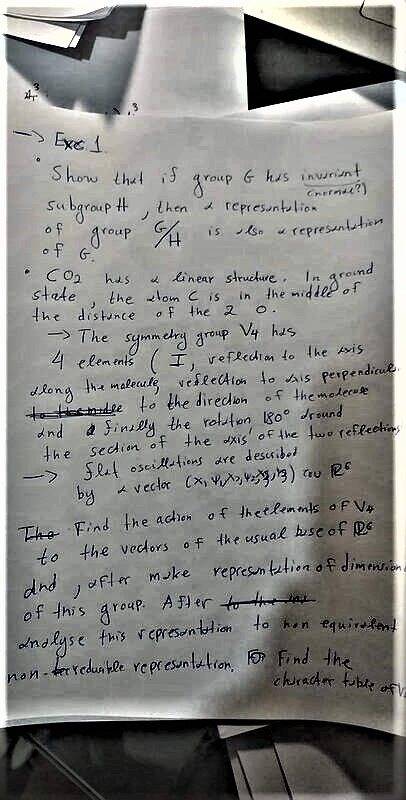 → Exc 1.
• Show that if group G has invariant
(normal?)
subgroup H, then a representation
of group G/H is also a representation
of G.
• CO2 has a linear structure. In ground
state, the atom C is in the middle of
the distance of the 2 O.
→ The symmetry group V4 has
4 elements ( I, reflection to the axis
along the molecule, reflection to axis perpendicul.
to the direction of the molecule
and finally the rotation 180° around
the section of the axis of the two reflections
→ flat oscillations are described
by a vector
Find the action of the elements of V4
to the vectors of the usual base of R6
and, after make representation of dimension
of this group. After
analyse this representation to non equivalent
non-reducable representation. Find the
character table of V